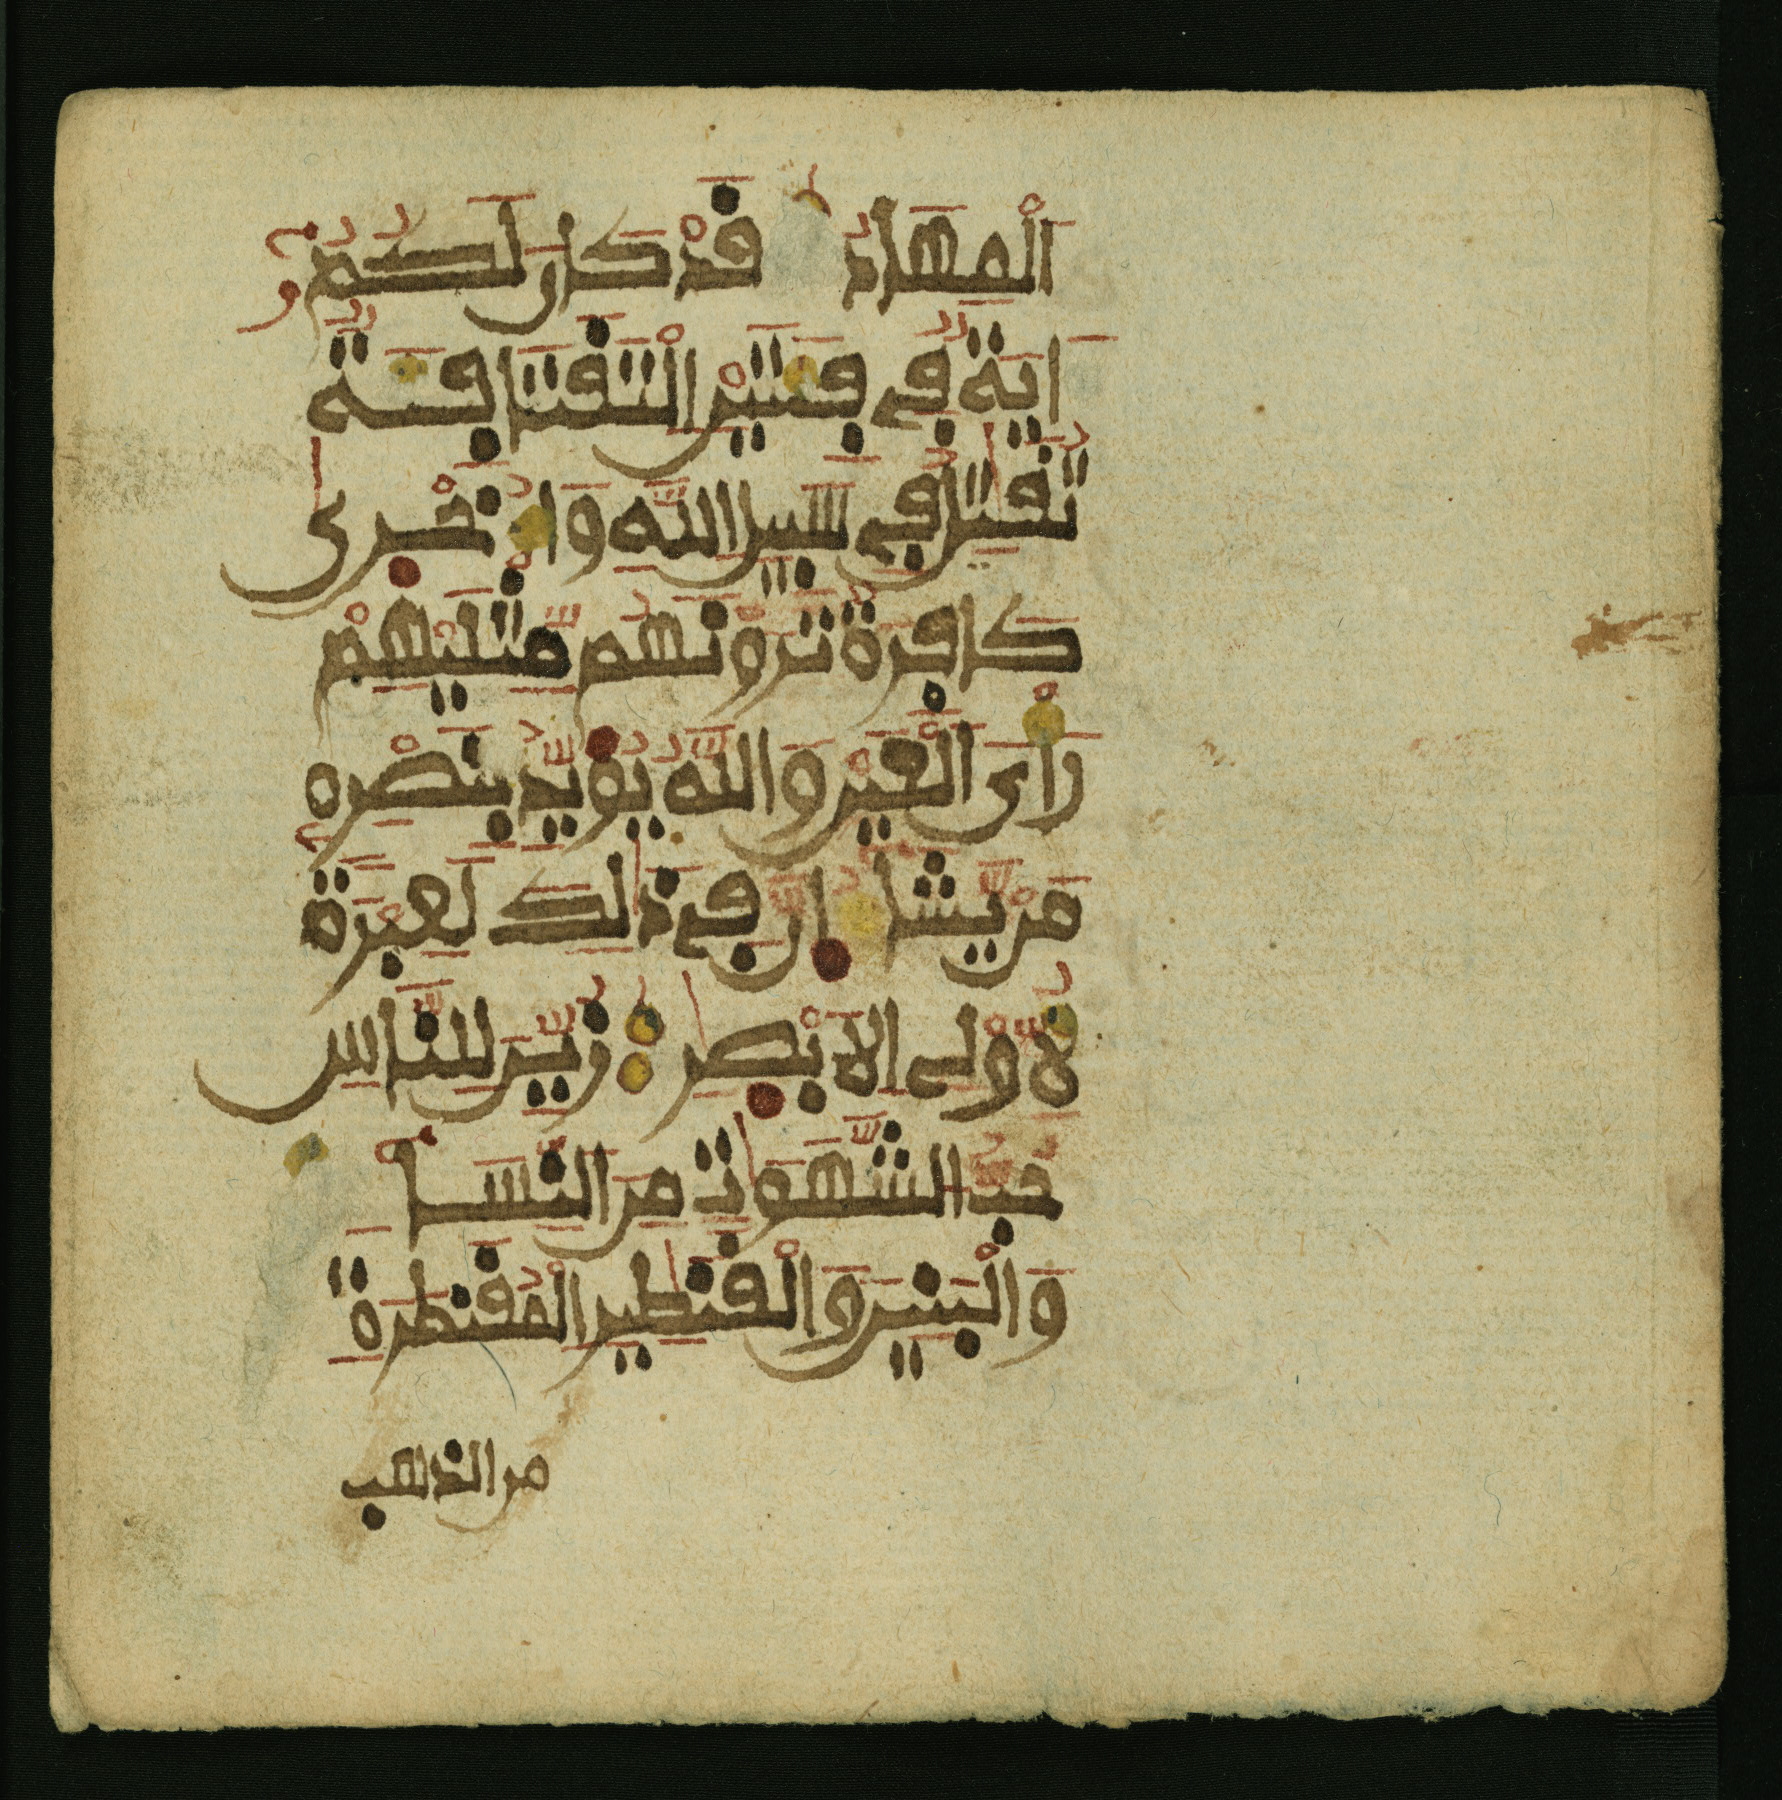 الْمِهَادُ قَدْ كَانَ لَكُمُ
ءَايَةٌ فِي فِئَتَيْنِ الْتَقَتَا فِئَةٌ
تُقَٰتِلُ فِي سَبِيلِ اللَّهِ وَأُخْرَىٰ
كَافِرَةٌ تَرَوْنَهُم مِّثْلَيْهِمْ
رَأْيَ الْعَيْنِ وَاللَّهُ يُؤَيِّدُ بِنَصْرِهِ
مَنْ يَّشَا إِنَّ فِي ذَٰلِكَ لَعِبْرَةً
لِّأُوْلِي الْأَبْصَٰرِ زُيِّنَ لِلنَّاسِ
حُبُّ الشَّهَوَٰتِ مِنَ النِّسَا
وَالْبَنِينَ وَالْقَنَٰطِيرِ الْمُقَنطَرَةِ
من الذهب